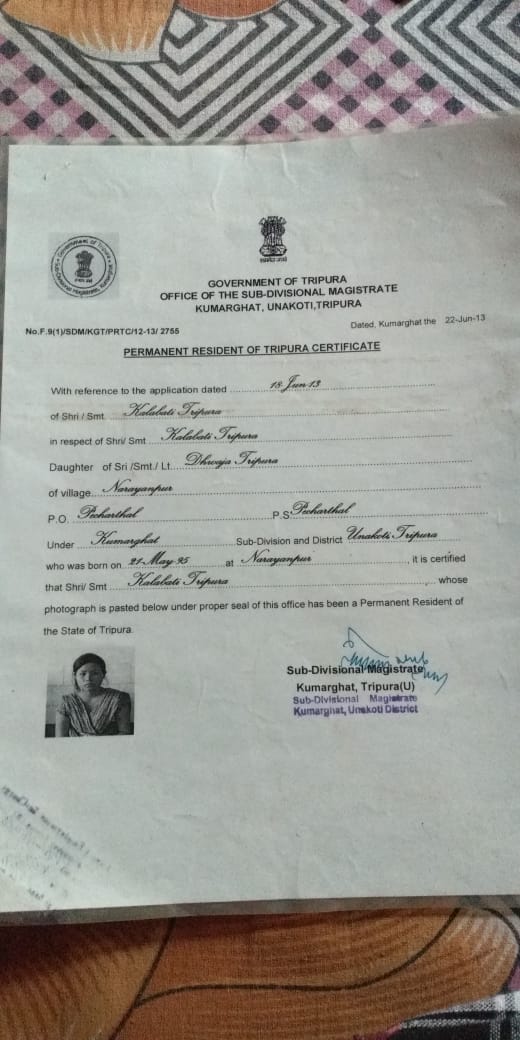 Government of Tripura
GOVERNMENT OF TRIPURA
OFFICE OF THE SUB-DIVISIONAL MAGISTRATE
KUMARGHAT, UNAKOTI,TRIPURA
No.F.9(1)/SDM/KGT/PRTC/12-13/ 2755
Dated, Kumarghat the 22-Jun-13
PERMANENT RESIDENT OF TRIPURA CERTIFICATE
With reference to the application dated 18-Jun-13
of Shri / Smt. Kalabati Tripura
in respect of Shri/ Smt Kalabati Tripura
Daughter of Sri /Smt./ Lt. Dhwaja Tripura
of village. Narayanpur
P.O. Pecharthal P.S. Pecharthal
Under Kumarghat Sub-Division and District Unakoti Tripura
who was born on 21-May-95 at Narayanpur , it is certified
that Shri/ Smt Kalabati Tripura whose
photograph is pasted below under proper seal of this office has been a Permanent Resident of
the State of Tripura.
Sub-Divisional Magistrate
Kumarghat, Tripura(U)
Sub-Divisional Magistrate
Kumarghat, Unakoti District